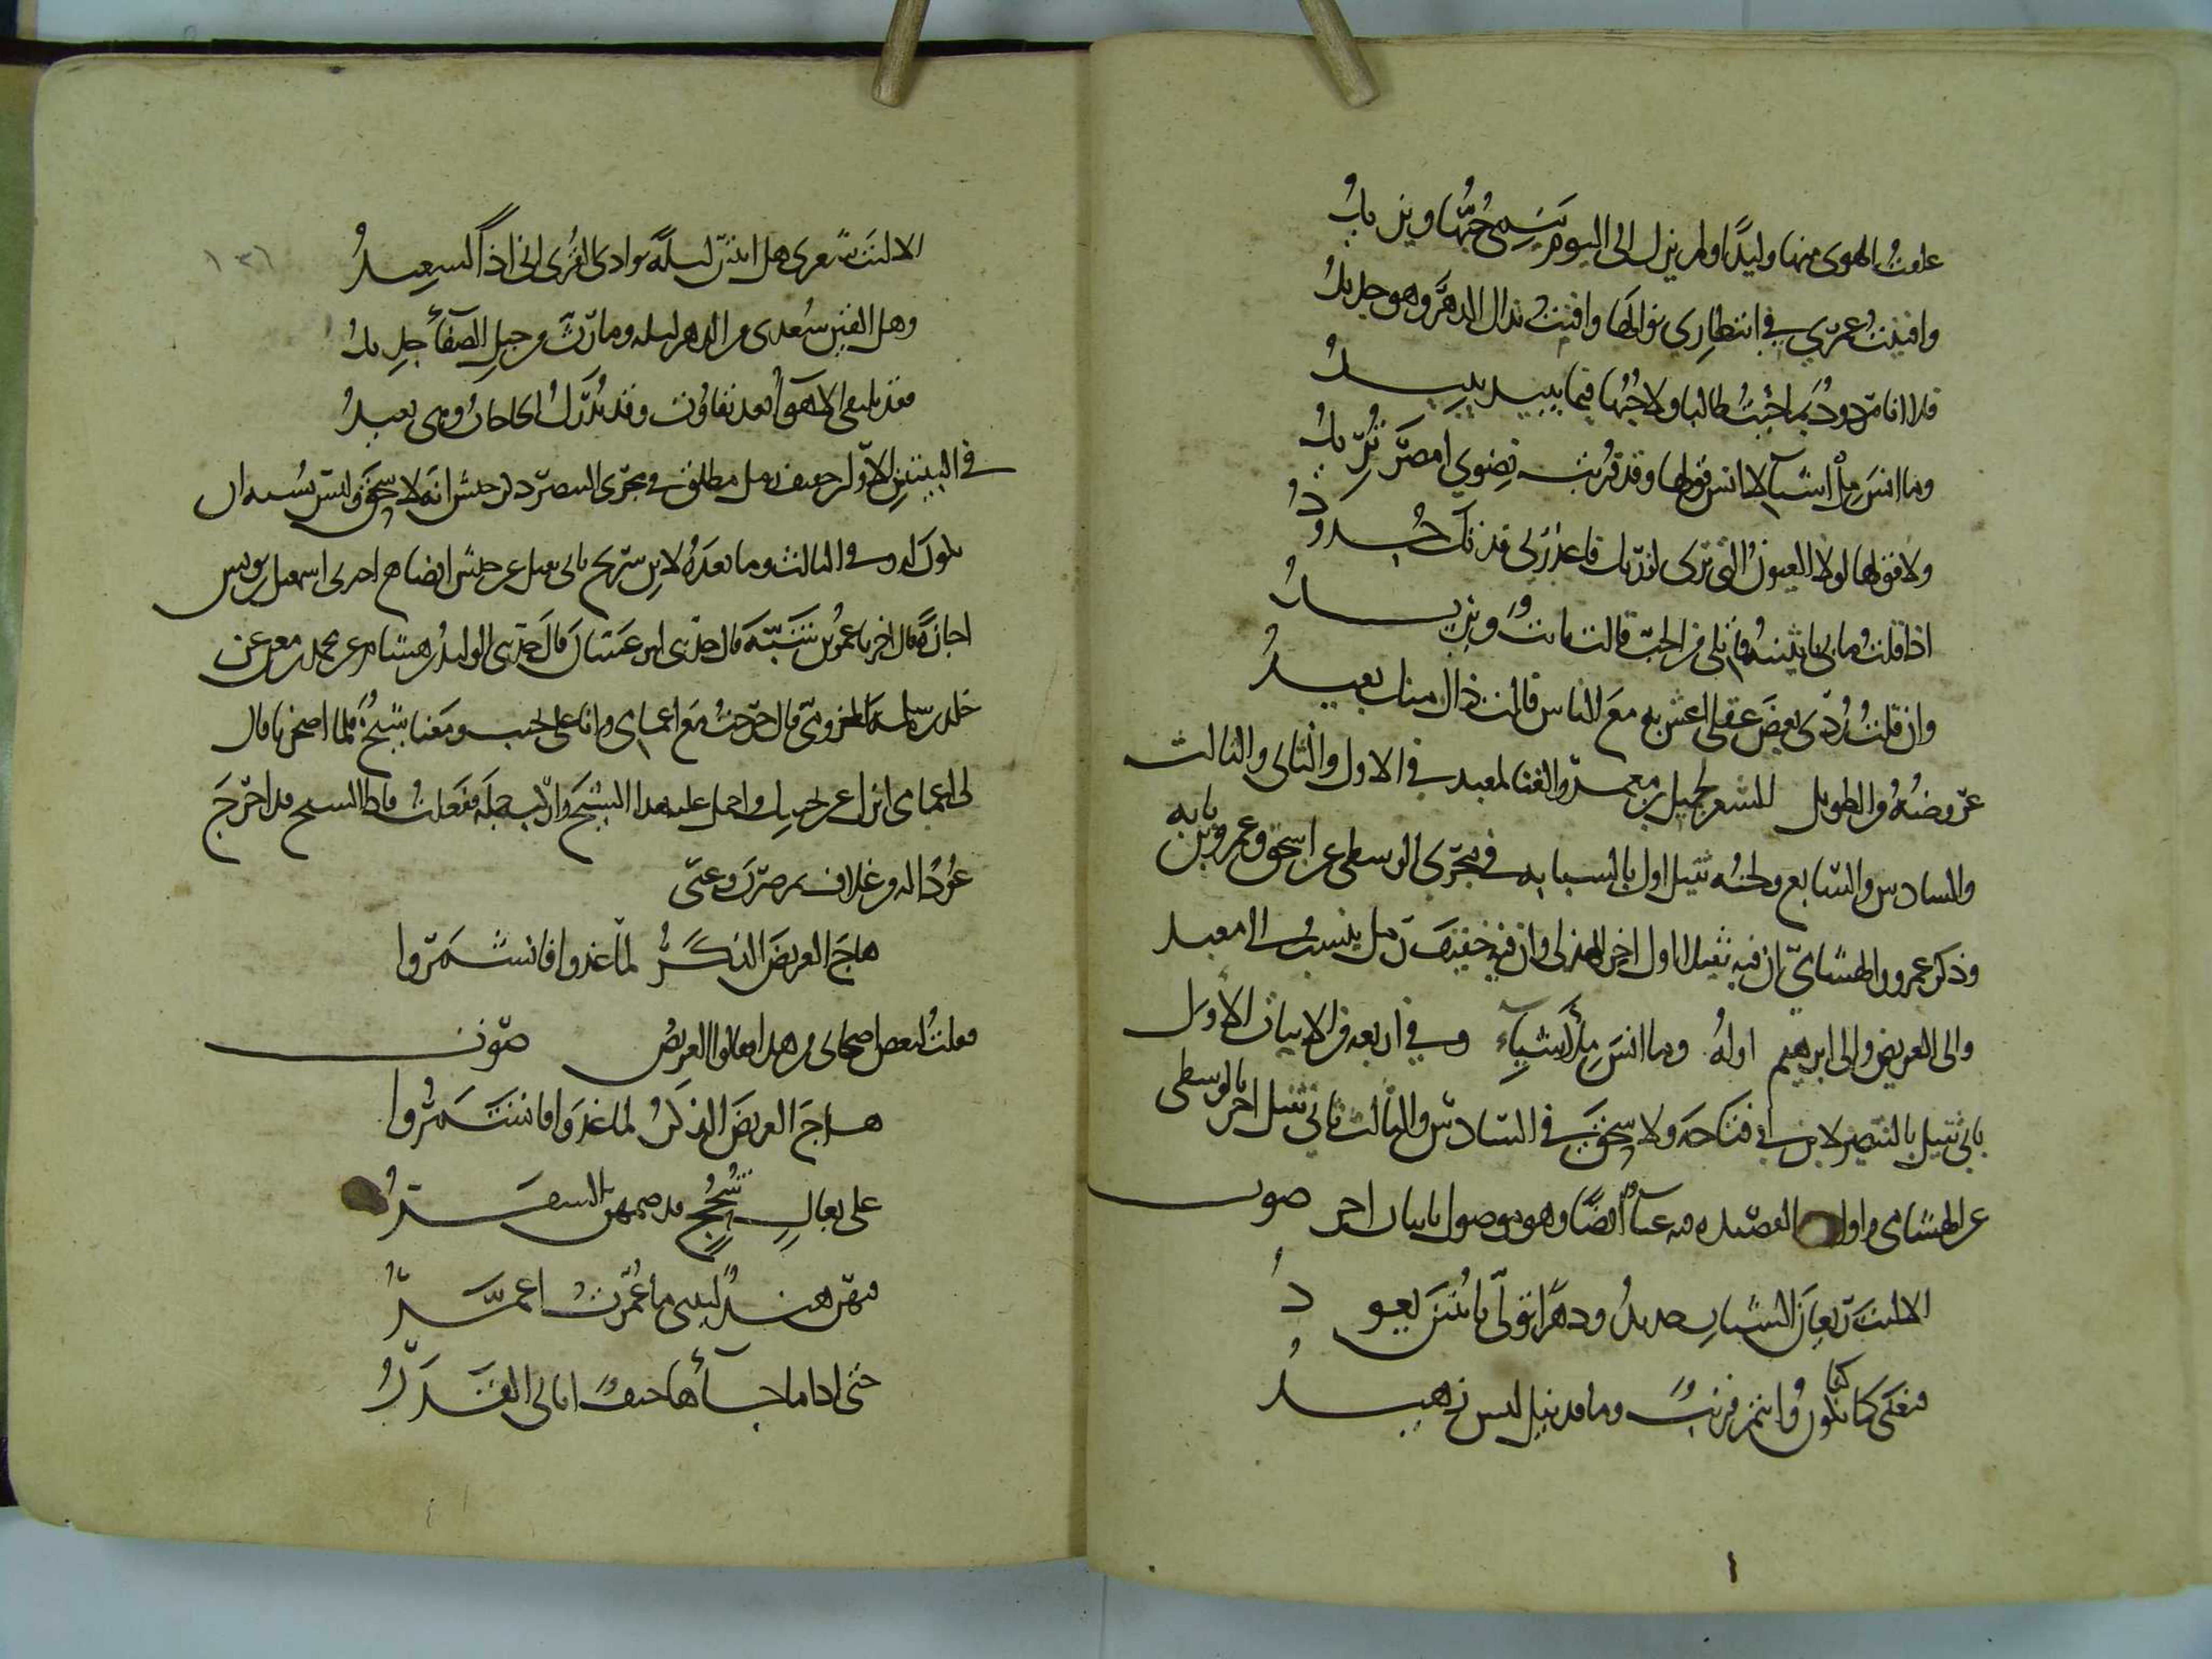 علقت الهوى منها وليدًا ولم يزل الى اليوم يَنمِى حُبُّها ويزيدُ
وافنيتُ عمري في انتظاري نوالها وافنت بذاك الدهر وهو جديدُ
فلا انا مردودٌ بما جئتُ طالبا ولا حُبُّها فيما يبيد يبيدُ
وما انسَ مِلْ اشياء لا انس قولها وقد قربت نِضوي امصرَ تُريدُ
ولا قولها لولا العيون التي ترى لزرتك فاعذرني فدتك جُدودُ
اذا قلتُ ما بي يا بثينة قاتلي من الحب قالت ثابتٌ ويزيدُ
وان قلتُ رُدّى بعضَ عقلي اعش به مع الناس قالت ذاك منك بعيدُ
عروضهُ من الطويل للشعر لجميل بن معمر والغنا لمعبد في الاول والثانى والثالث
والسادس والسابع ولحنُه ثقيل اول بالسبابه في مجرى الوسطى عن اسحق وعمرو بن بانه
وذكر عمرو والهشاميّ ان فيه ثقيلا اول اخر للهذلى وان فيه خفيف رمل ينسب الى معبد
والى الغريض والى ابرهيم اولهُ وما انسَ مِلْ اشياء وفي اربعه من الابيات الاول
ثاني ثقيل بالبنصر لابن ابي قباحه ولاسحق في السادس والثالث ثاني ثقيل اخر بالوسطى
عن الهشامى واول القصيده فيه غناء ايضًا وهو موصول بابيات اخر صوت
الا ليت ريعان الشباب جديدُ ودهرًا تولّى يا بثينَ يعودُ
فنغنَى كما كنّا نكون وانتم قريبٌ وما قد تبذلين زهيدُ
الا ليتَ شعرى هل ابيتن ليلةً بوادى القُرى انى اذًا لسعيدُ
وهل القين سُعدى من الدهر ليله وما رثّ من حبل الصفاء جديدُ
فقد تلتقى الاهواء بعد تفاوت وقد تُدرَكُ الحاجات وهى بعيدُ
في البيتين الاولين خفيف رمل مطلق في مجرى البنصر ذكر حبش انه لاسحق وليس يشبه ان
يكون له وفي الثالث وما بعدهُ لابن سريج ثانى ثقيل عن حبش ايضا ح اخبرنى اسمعيل بن يونس
اجازةً قال اخبرنا عمر بن شَبّهَ قال حدثنى ابو غسّان قال حدثنى الوليد بن هشام عن محمد بن معن عن
خلد بن سلمه المخزومى قال خرجتُ مع اعمامى وانا على نجيب ومعنا شيخٌ فلما اصحرنا قال
لى اعمامى انزل عن نجيبك واحمل عليه هذا الشيخ واركب جمله ففعلتُ فاذا الشيخ قد اخرجَ
عُودًا له من غلاف ثم ضرب وغنّى
هاجَ الغريضَ الذكَرُ لما غدوا فانشمروا
فقلتُ لبعض اصحابى من هذا فقالوا الغريضُ صوت
هاجَ الغريضَ الذكرُ لما غدَوا فانشَمَروا
على بغالٍ شُحَّجٍ قد ضمهنّ السفَرُ
فيهن هندٌ ليتنى ما عُمّرت اعمَّرُ
حتى اذا ما جاءها حتفٌ اتانى القَدَرُ